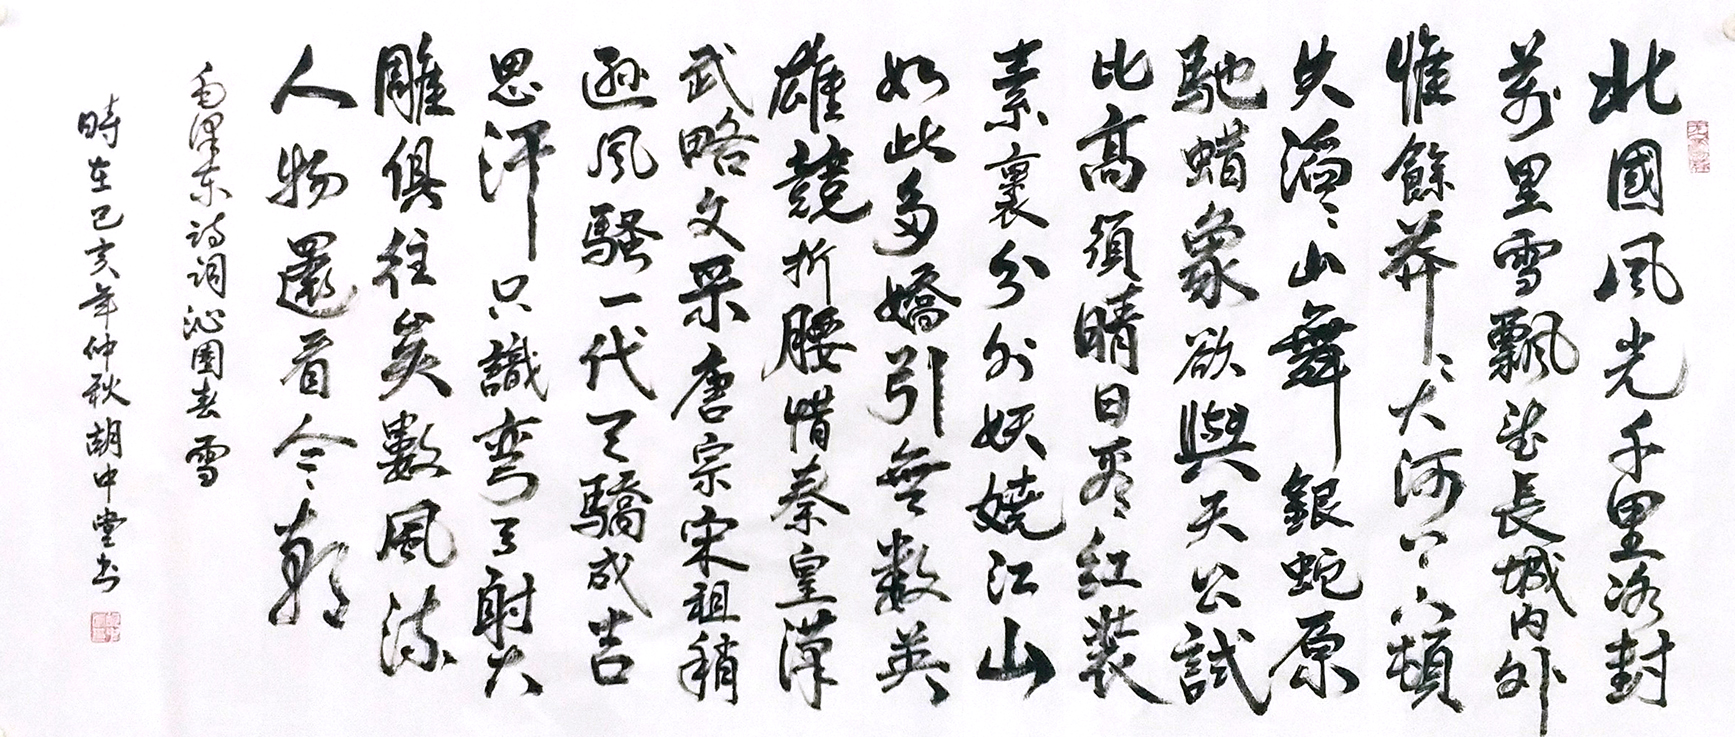 北國風光千里冰封
萬里雪飄望長城内外
惟餘莽〻大河上下頓
失滔〻山舞銀蛇原
馳蜡象欲與天公試
比高須晴日看紅裝
素裹分外妖嬈江山
如此多嬌引無数英
雄競折腰惜秦皇漢
武略文采唐宗宋祖稍
遜風騷一代天驕成吉
思汗只識弯弓射大
雕俱往矣數風流
人物還看今朝
毛澤东詩詞沁園春 雪
時在己亥年仲秋胡中堂书